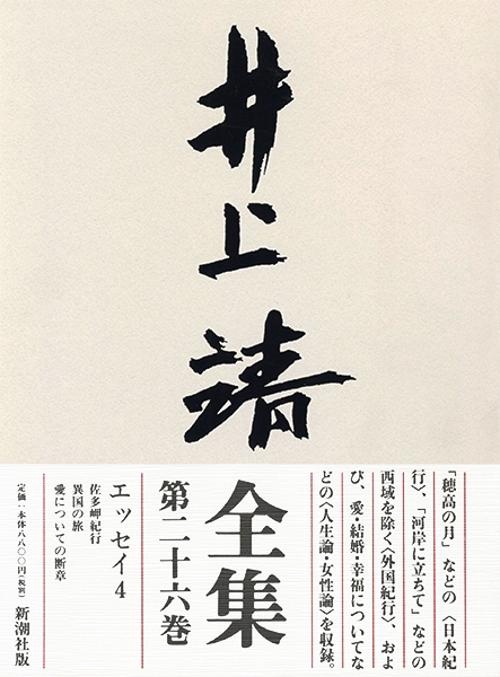 井上靖
「穂高の月」などの〈日本紀
行〉、「河岸に立ちて」などの
西域を除く〈外国紀行〉、およ
び、愛・結婚・幸福についてな
どの〈人生論・女性論〉を収録。
全集
第二十六巻
エッセイ4
佐多岬紀行
異国の旅
愛についての断章
定価：本体八八〇〇円（税別）
新潮社版